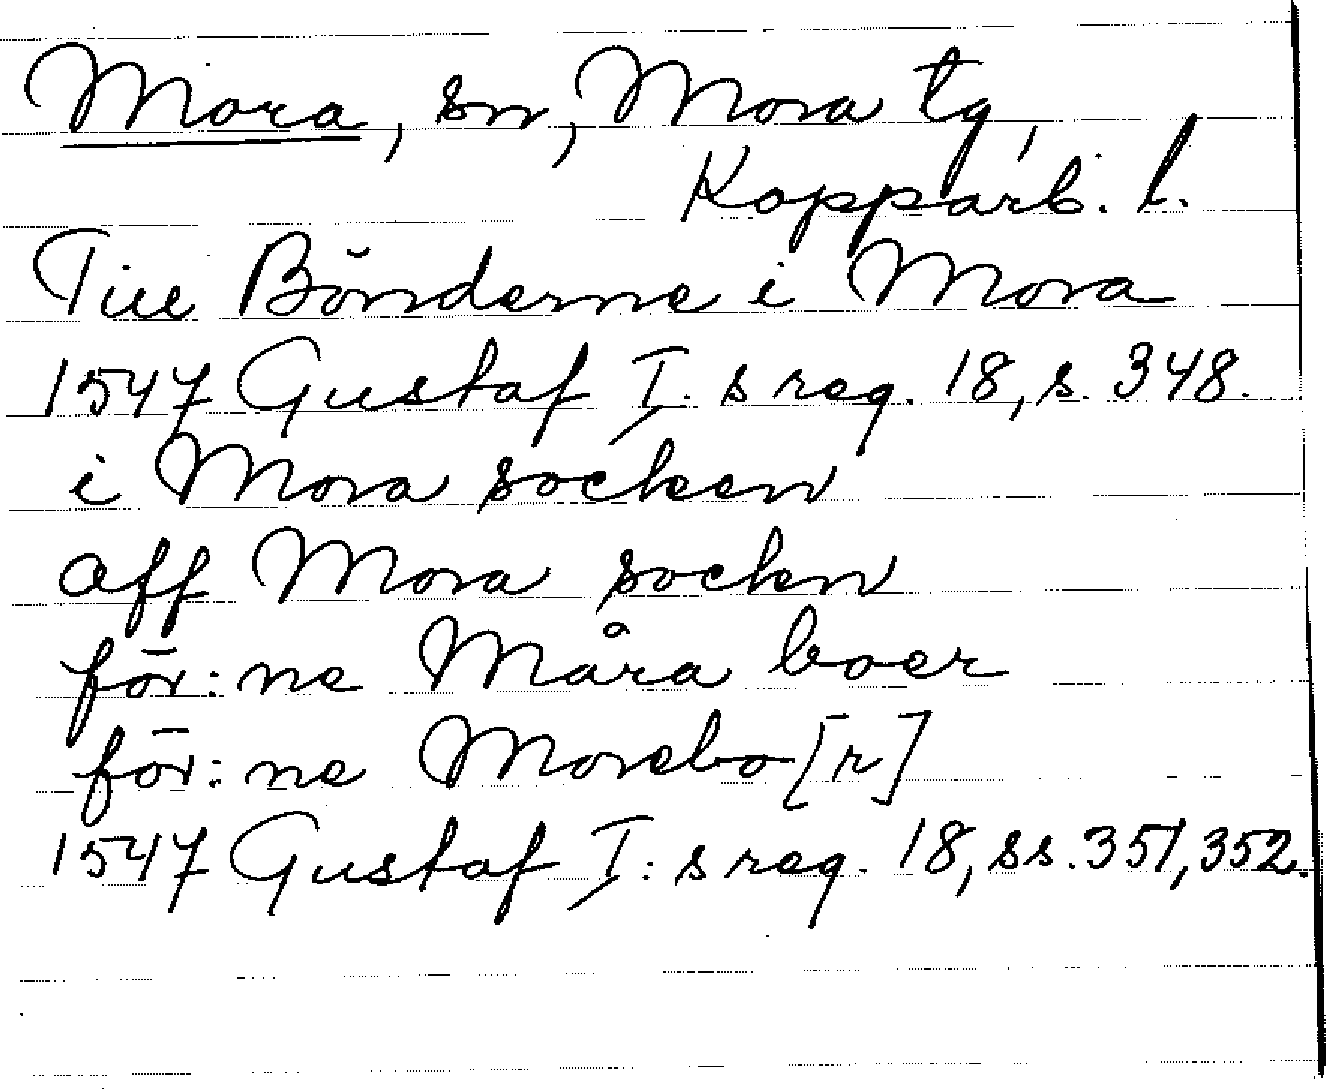 Mora, sn, Mora tg,
Kopparb. l.
Till Bönderne i Mora
1547 Gustaf I. s reg. 18, s. 348.
i Mora socken
aff Mora sockn
för:ne Måra boer
för:ne Morebo[r]
1547 Gustaf I: s reg. 18, ss. 351, 352.